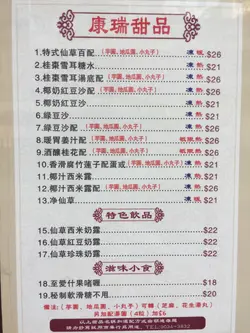 康瑞甜品
1.特式仙草百配 (芋圓、地瓜圓、小丸子) 凍 $26
2.桂棗雪耳糖水 凍 熱 $21
3.桂棗雪耳湯底配 (芋圓、地瓜圓、小丸子) 凍 熱 $26
4.椰奶紅豆沙配 (芋圓、地瓜圓、小丸子) 凍 熱 $26
5.椰奶紅豆沙 凍 熱 $21
6.綠豆沙 凍 熱 $21
7.綠豆沙配 (芋圓、地瓜圓、小丸子) 凍 熱 $26
8.暖胃姜汁配 (芋圓、地瓜圓、小丸子) $26
9.酒釀桂花配 (芋圓、地瓜圓、小丸子) $26
10.香滑腐竹蓮子配蛋或 凍 熱 $26
11.椰汁西米露 凍 熱 $21
12.椰汁西米 凍 熱 $26
13.净仙草 凍 $21
特色飲品
15.仙草西米奶露 $22
16.仙草紅豆奶露 $22
17.仙草珍珠奶露 $22
滋味小食
18.至愛什果啫喱 $18
19.秘制軟滑糖不甩 $20
備注:(芋圓、地瓜圓、小丸子)可轉(芝麻、花生湯丸)